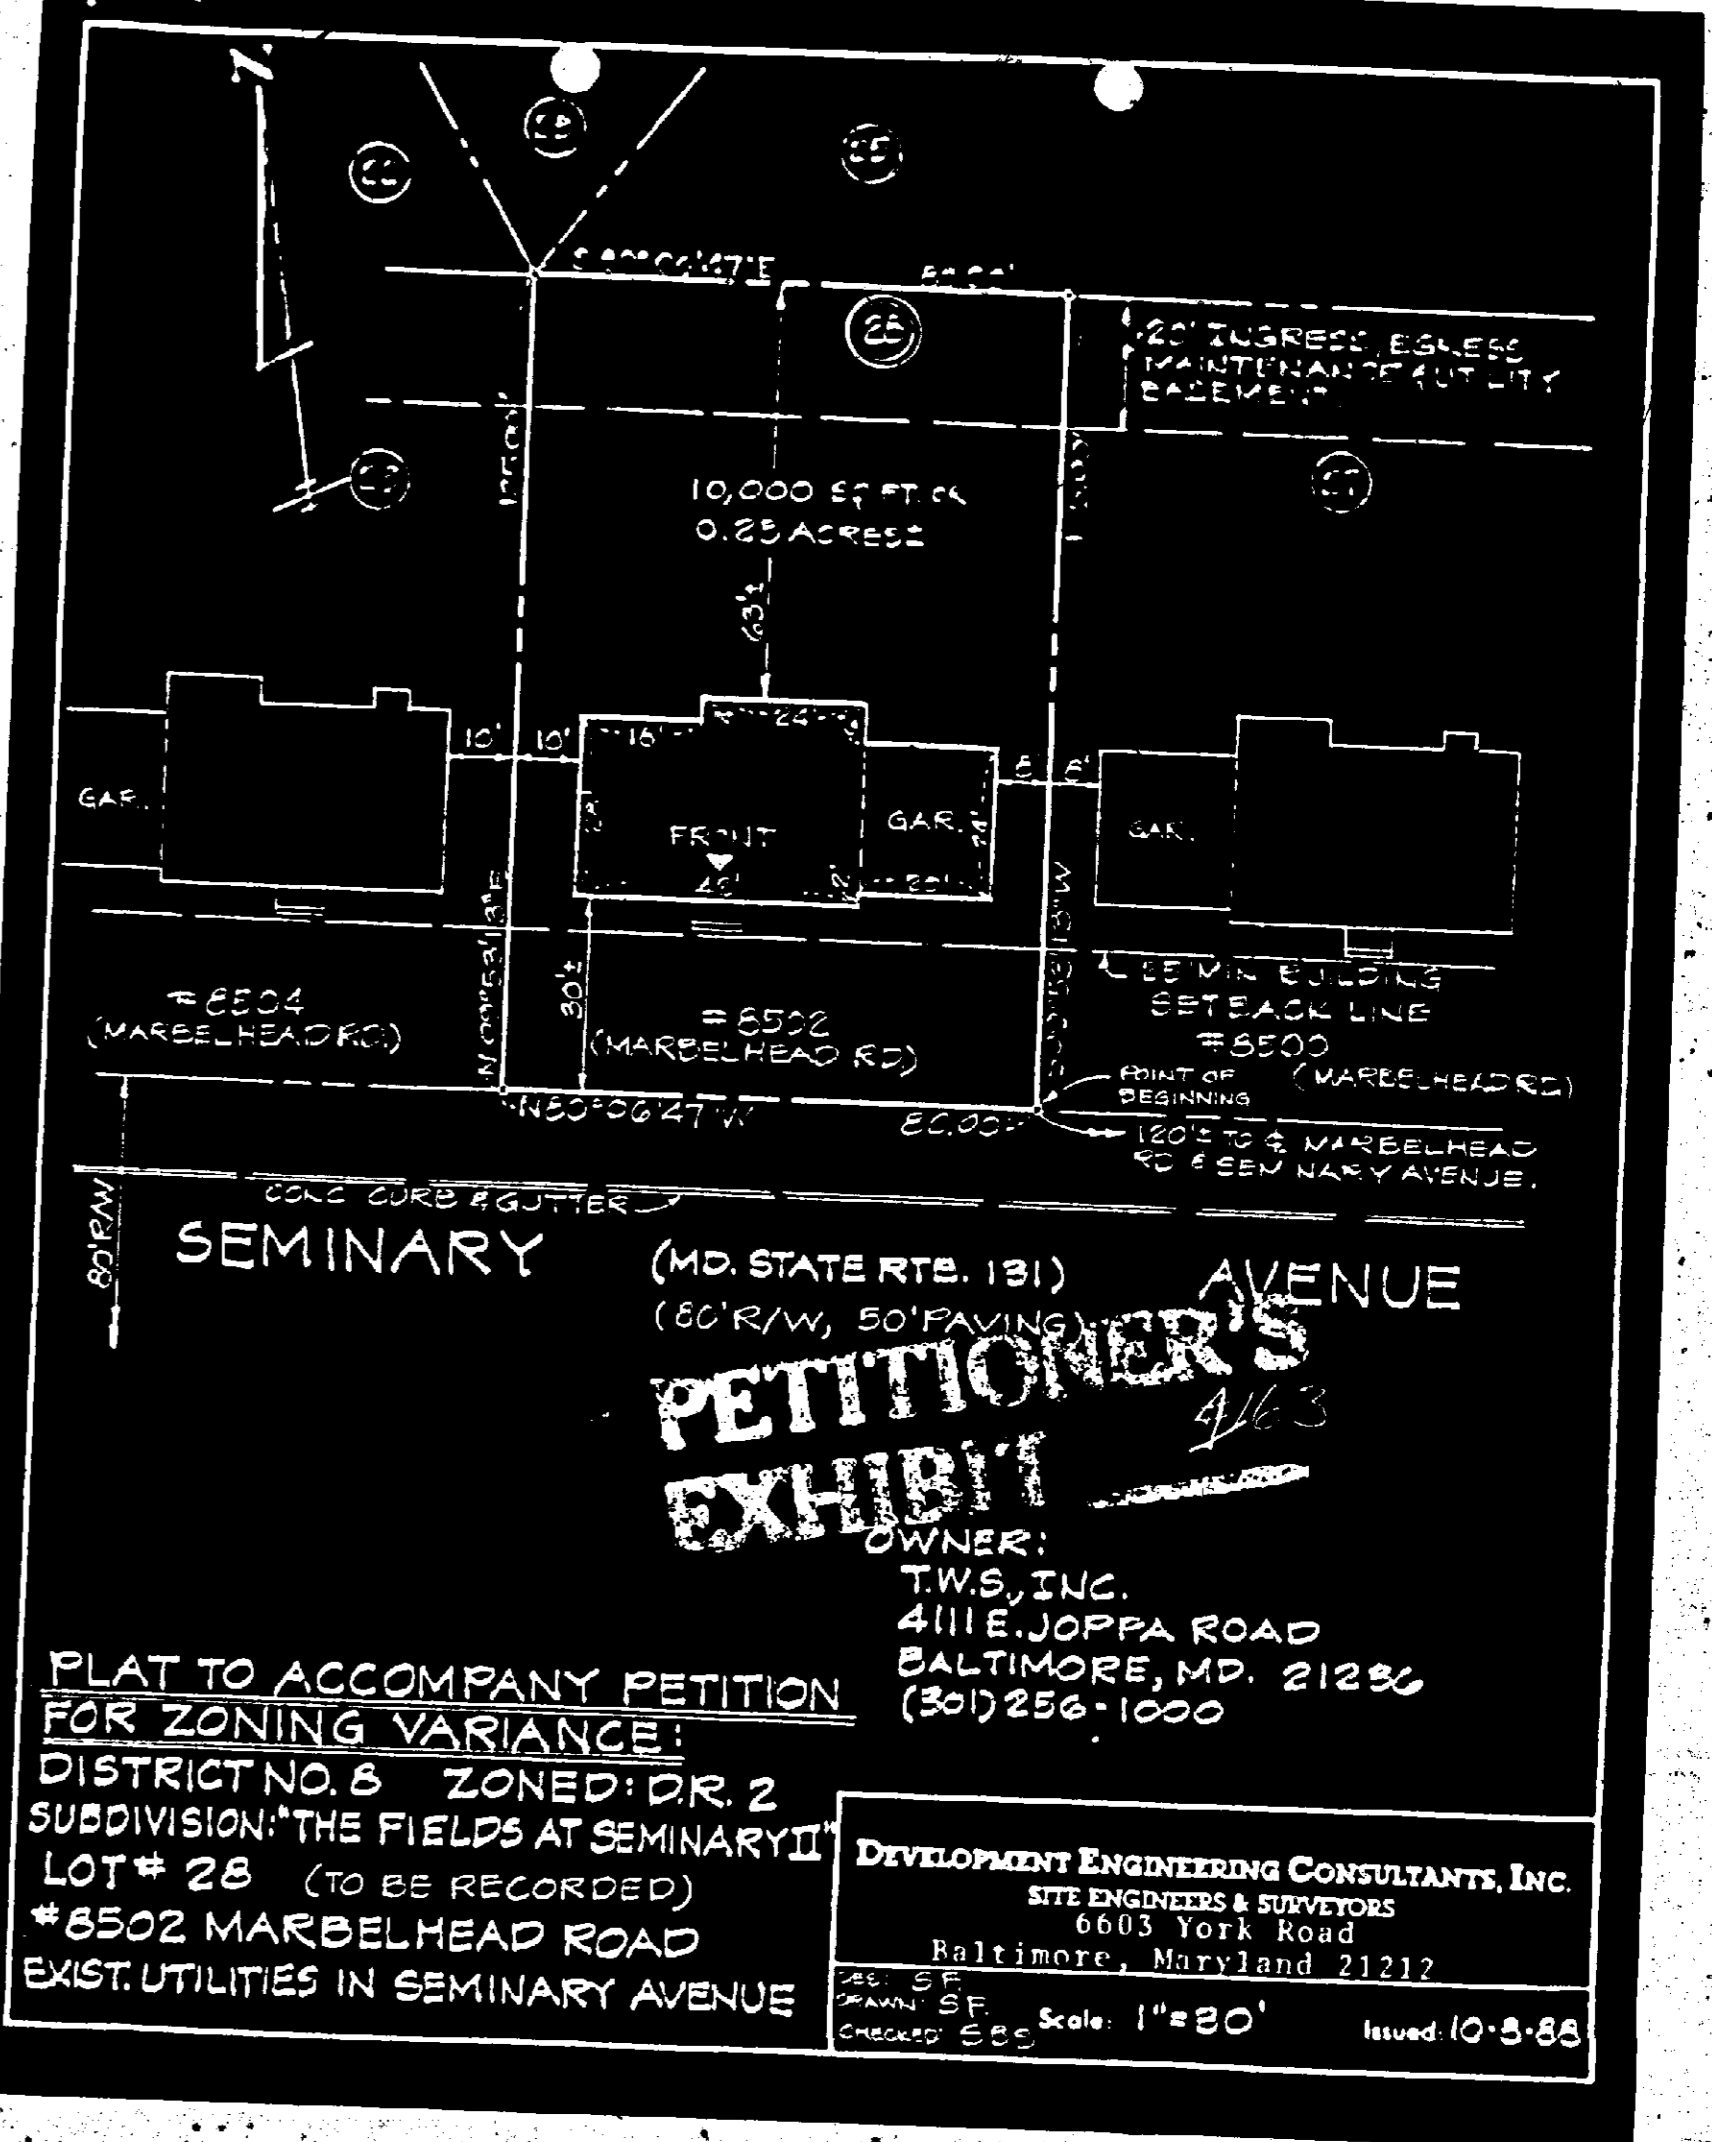 20' INGRESS, EGRESS
MAINTENANCE & UTILITY
EASEMENT
10,000 SQ FT. OR
0.23 ACRES±
63'±
10'
10'
16'
24'
8'
8'
GAR.
FRONT
GAR.
24'
GAR.
40'
2'
20'
30'±
N 09°53'13" E
#8504
(MARBELHEAD RD.)
#8502
(MARBELHEAD RD)
MIN BUILDING
SETBACK LINE
#8500
(MARBELHEAD RD)
POINT OF
BEGINNING
N80°06'47"W
80.00'
120'± TO ℄ MARBELHEAD
RD & SEMINARY AVENUE.
80' R/W
CONC CURB & GUTTER
SEMINARY
(MD. STATE RTE. 131)
AVENUE
(80' R/W, 50' PAVING)
PETITIONER'S
EXHIBIT
4/163
OWNER:
T.W.S., INC.
4111 E. JOPPA ROAD
BALTIMORE, MD. 21236
(301) 256-1000
PLAT TO ACCOMPANY PETITION
FOR ZONING VARIANCE:
DISTRICT NO. 8 ZONED: D.R. 2
SUBDIVISION: "THE FIELDS AT SEMINARY II"
LOT # 28 (TO BE RECORDED)
#8502 MARBELHEAD ROAD
EXIST. UTILITIES IN SEMINARY AVENUE
DEVELOPMENT ENGINEERING CONSULTANTS, INC.
SITE ENGINEERS & SURVEYORS
6603 York Road
Baltimore, Maryland 21212
DES: S.F.
DRAWN: S.F.
CHECKED: SBS
Scale: 1"=30'
Issued: 10-3-88